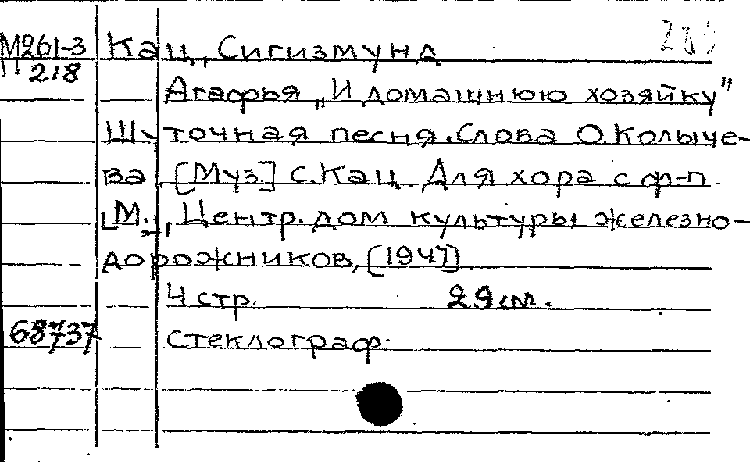 М261-3 Кац, Сигизмунд
П 218
Агафья „И домашнюю хозяйку"
Шуточная песня. Слова О. Колыче-
ва. [Муз.] С. Кац. Для хора с ф-п
[М.], Центр. дом культуры железно-
дорожников, [1947]
4 стр. 29 см.
68737 Стеклограф.